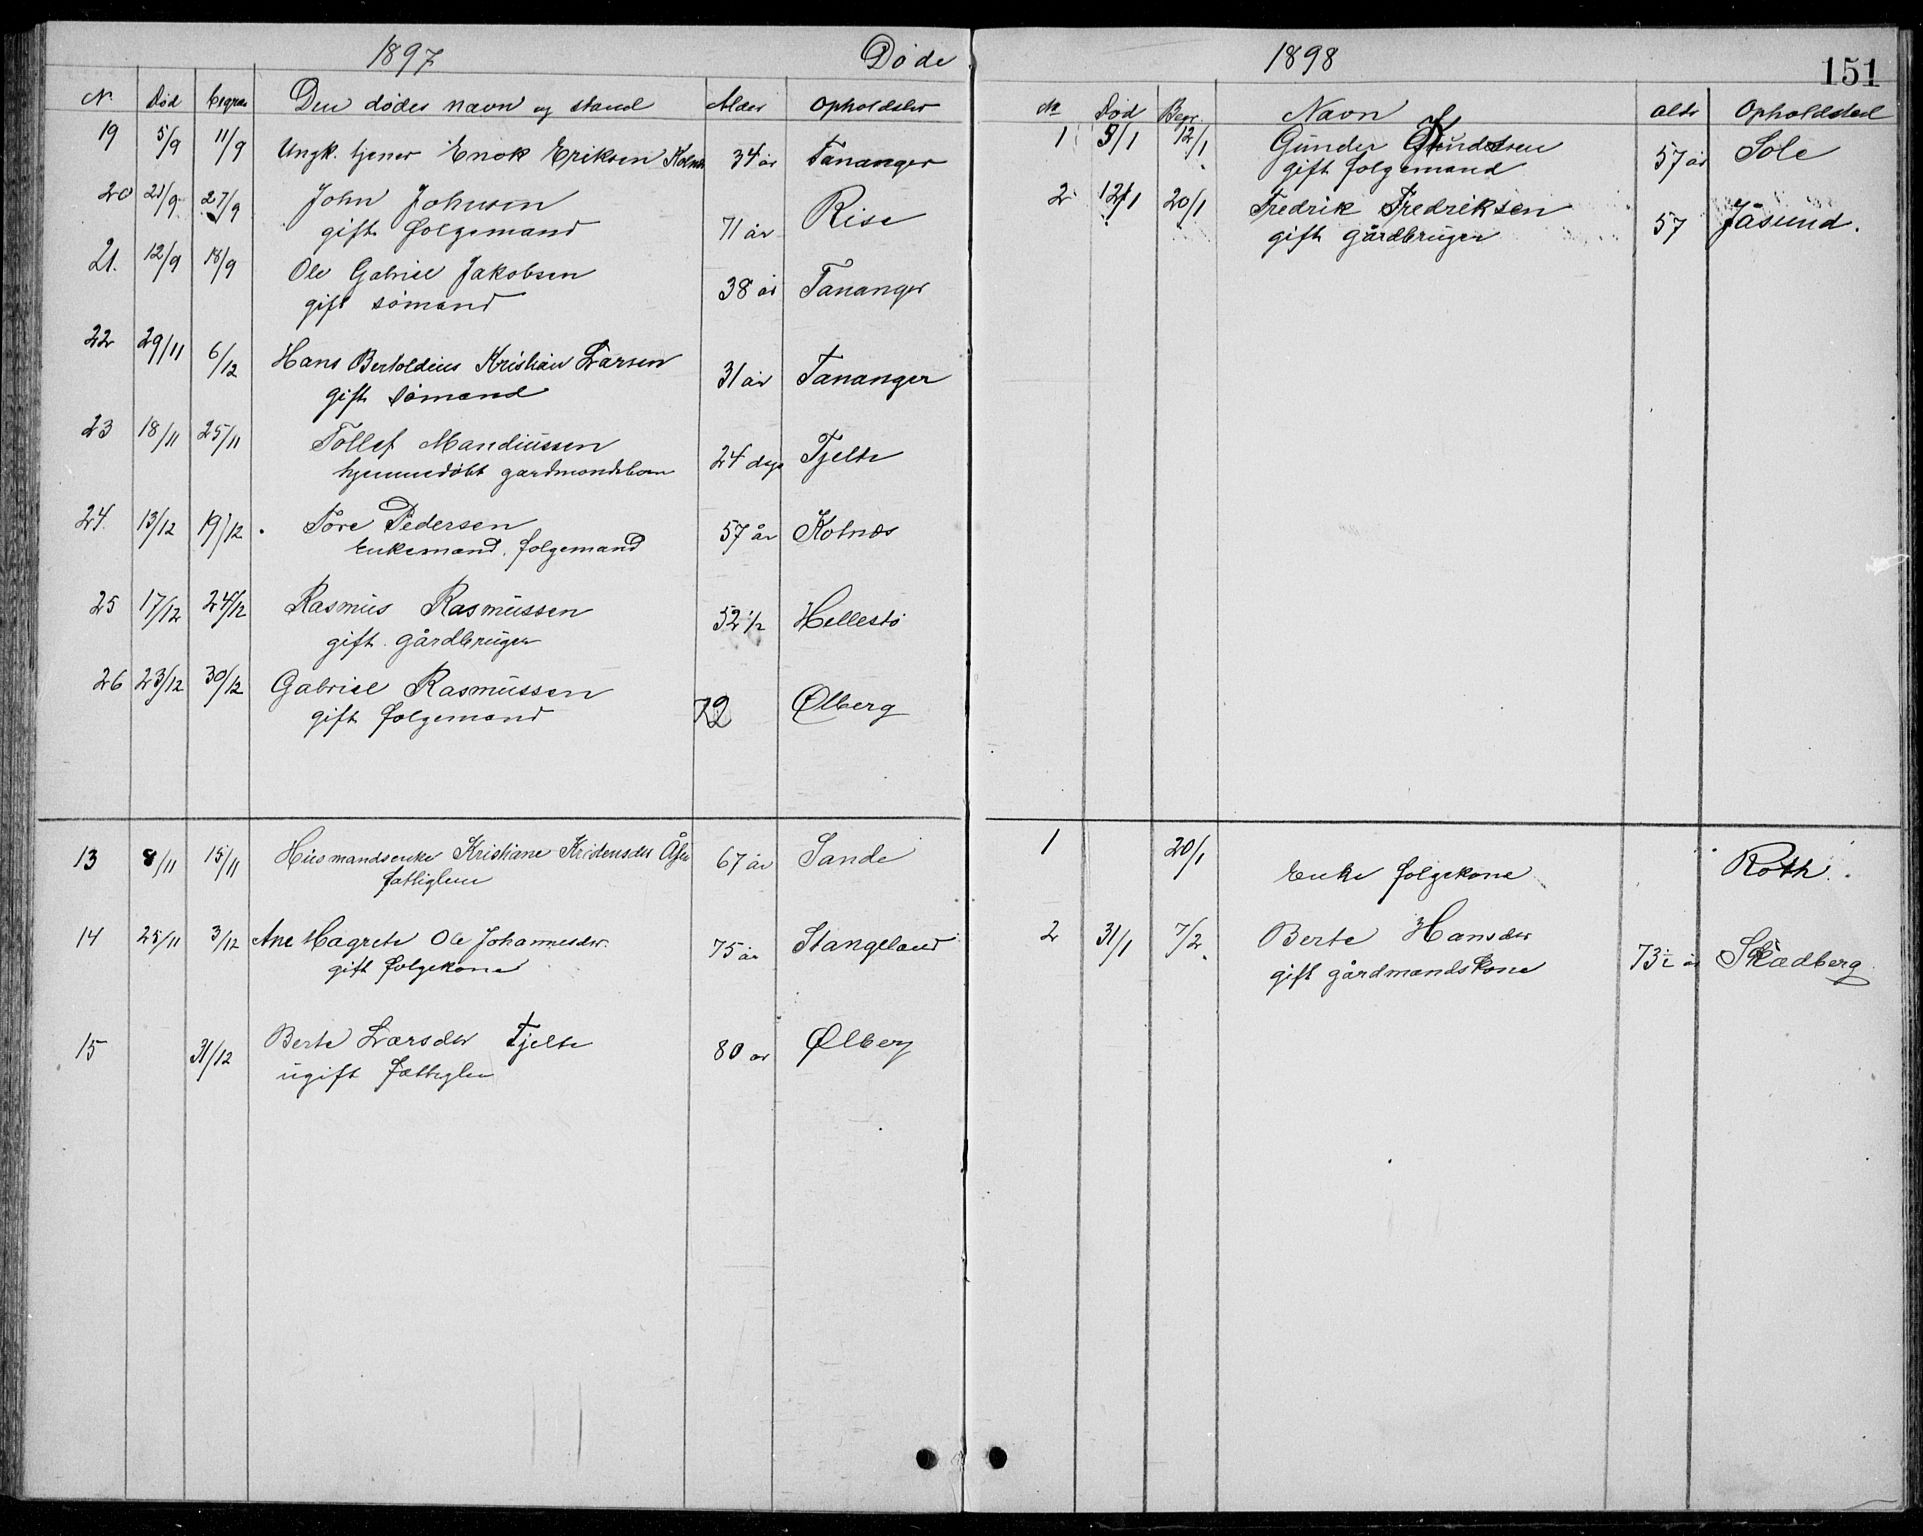 1897 Døde
N Død begrav Den dødes navn og stand Alder Opholdsted
19 5/9 11/9 Ungk. tjener Enok Eriksen Kolnes 34 år Tananger
20 21/9 27/9 John Johnsen 71 år Risa
gift folgemand
21. 12/9 18/9 Ole Gabriel Jakobsen 38 år Tananger
gift sømand
22 29/11 6/12 Hans Bertoldius Kristian Larsen 31 år Tananger
gift sømand
23 18/11 25/11 Tollef Mandiussen 24 dage Tjelte
hjemmedøbt gardmandsbarn
24. 13/12 19/12 Tore Pedersen 57 år Kolnæs
Enkemand, folgemand
25 17/12 24/12 Rasmus Rasmussen 52 1/2 Hellestø
gift gårdbruger
26 23/12 30/12 Gabriel Rasmussen 72 Ølberg
gift folgemand
13 8/11 15/11 Husmandsenke Kristiane 67 år Sande
fattiglem
14 25/11 3/12 Ane Magrete Ole Johannesdtr. 75 år Stangeland
gift folgekone
15 31/12 Berte Larsdtr Tjelte 80 år Ølberg
ugift fattiglem
1898 151
No Død Begr. Navn alder Opholdsted
1 5/1 12/1 Gunder 57 år Sole
gift folgemand
2 12/1 20/1 Fredrik Fredriksen 57 Jåsund.
gift gårdbruger
1 20/1 Enke folgekone Roth.
2 31/1 7/2 Berte Hansdtr 73 1/2 år Skadberg
gift gårdmandskone